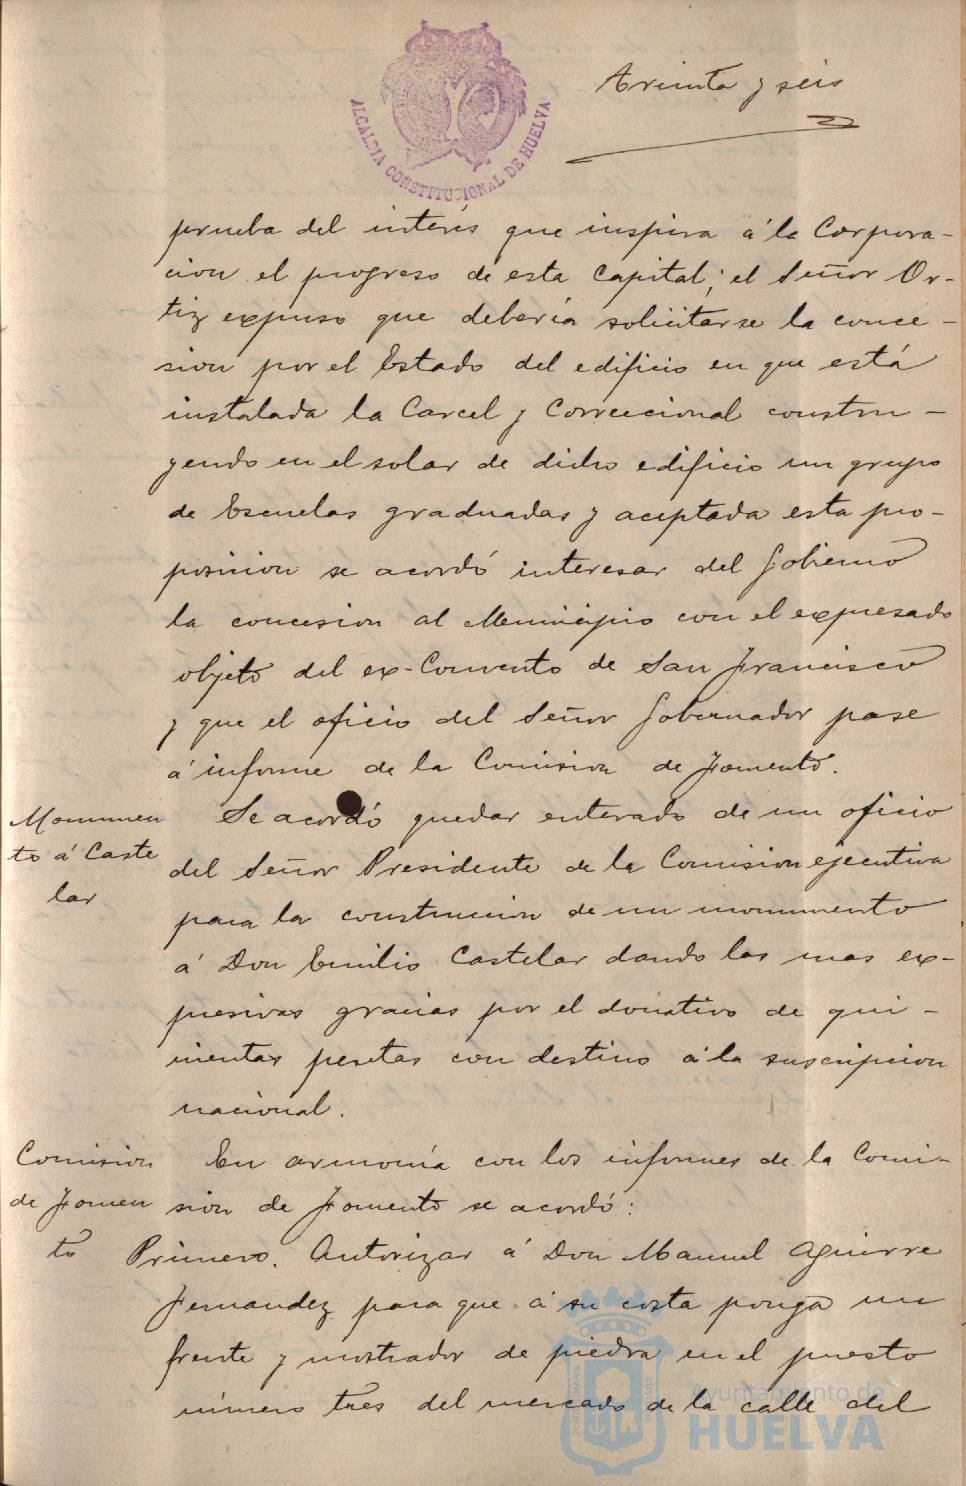 ALCALDIA CONSTITUCIONAL DE HUELVA
Treinta y seis
prueba del interés que inspira á la Corpora-
cion el progreso de esta Capital; el Señor Or-
tiz expuso que debería solicitarse la conce-
sion por el Estado del edificio en que está
instalada la Carcel y Correccional constru-
yendo en el solar de dicho edificio un grupo
de Escuelas graduadas y aceptada esta pro-
posicion se acordó interesar del Gobierno
la concesion al Municipio con el expresado
objeto del ex-Convento de San Francisco
y que el oficio del Señor Gobernador pase
á informe de la Comision de Fomento.
Monumen
to á Caste
lar
Se acordó quedar enterado de un oficio
del Señor Presidente de la Comision ejecutiva
para la construccion de un monumento
á Don Emilio Castelar dando las mas ex-
presivas gracias por el donativo de qui-
nientas pesetas con destino á la suscripcion
nacional.
Comision
de Fomen
to
En armonía con los informes de la Comi-
sion de Fomento se acordó:
Primero. Autorizar á Don Manuel Aguirre
Fernandez para que á su costa ponga un
frente y mostrador de piedra en el puesto
número tres del mercado de la calle del
Ayuntamiento de
HUELVA